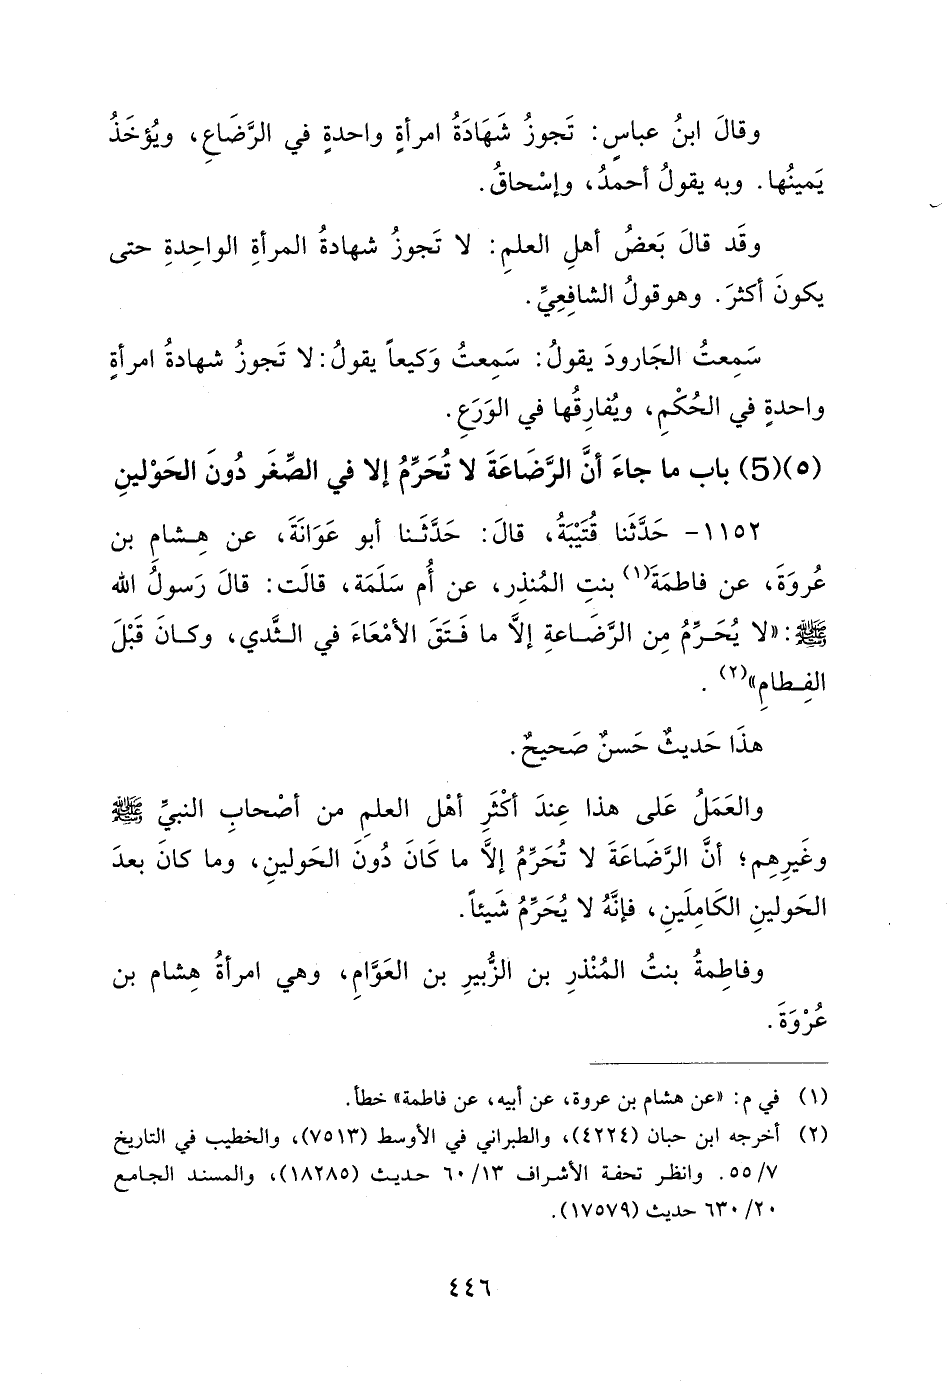 وقالَ ابنُ عباسٍ: تَجوزُ شَهَادَةُ امرأةٍ واحدةٍ في الرَّضَاعِ، ويُؤخَذُ
يَمينُها. وبه يقولُ أحمدُ، وإسْحاقُ.
وقَد قالَ بَعضُ أهلِ العلمِ: لا تَجوزُ شهادةُ المرأةِ الواحِدةِ حتى
يكونَ أكثرَ. وهوقولُ الشافِعِيِّ.
سَمِعتُ الجَارودَ يقولُ: سَمِعتُ وَكيعاً يقولُ: لا تَجوزُ شهادةُ امرأةٍ
واحدةٍ في الحُكْمِ، ويُفارِقُها في الوَرَعِ.
(٥)(5) باب ما جاءَ أنَّ الرَّضَاعَةَ لا تُحَرِّمُ إلا في الصِّغَر دُونَ الحَوْلينِ
١١٥٢- حَدَّثَنا قُتَيْبَةُ، قالَ: حَدَّثَنا أبو عَوَانَةَ، عن هِشام بن
عُروَةَ، عن فاطمَةَ(١) بنتِ المُنذِر، عن أُم سَلَمَة، قالَت: قالَ رَسولُ الله
ﷺ: «لا يُحَرِّمُ مِن الرَّضَاعةِ إلَّا ما فَتَقَ الأمْعَاءَ في الثَّدي، وكانَ قَبْلَ
الفِطامِ»(٢).
هذَا حَديثٌ حَسنٌ صَحيحٌ.
والعَمَلُ عَلى هذا عِندَ أكْثَرِ أهْل العلمِ من أصْحابِ النبيِّ ﷺ
وغَيرِهِم؛ أنَّ الرَّضَاعَةَ لا تُحَرِّمُ إلَّا ما كَانَ دُونَ الحَولينِ، وما كانَ بعدَ
الحَولينِ الكَامِلَينِ، فإنَّهُ لا يُحَرِّمُ شَيئاً.
وفاطِمةُ بنتُ المُنْذرِ بن الزُّبيرِ بن العَوَّامِ، وهي امرأةُ هِشام بن
عُرْوَةَ.
(١) في م: «عن هشام بن عروة، عن أبيه، عن فاطمة» خطأ.
(٢) أخرجه ابن حبان (٤٢٢٤)، والطبراني في الأوسط (٧٥١٣)، والخطيب في التاريخ
٧/ ٥٥. وانظر تحفة الأشراف ١٣/ ٦٠ حديث (١٨٢٨٥)، والمسند الجامع
٢٠/ ٦٣٠ حديث (١٧٥٧٩).
٤٤٦